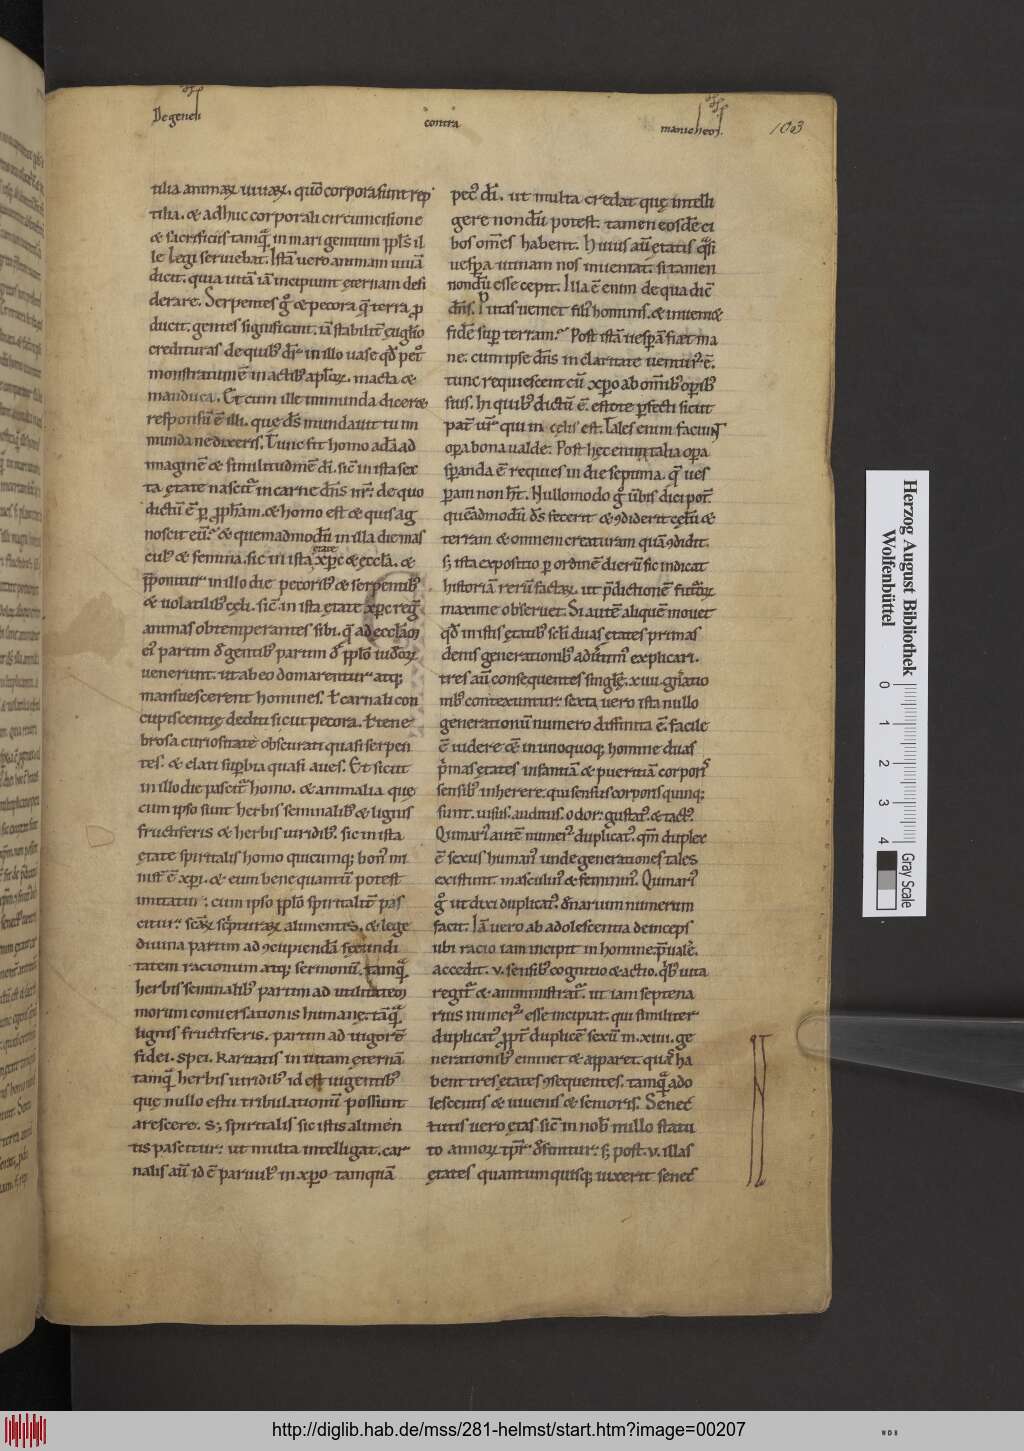 De genesi
contra
manicheos.
103
tilia animaꝝ uiuaꝝ. quō corpora sunt rep
tilia. & adhuc corporali circumcisione
& sacrificiis tamq̄ in mari gentium ppl̄s il
le legi seruiebat. Istā uero animam uiuā
dicit. quia uitā iā incipiunt ęternam desi
derare. Serpentes g̊ & pecora q̄ terra ꝓ
ducit. gentes significant. iā stabilit̄ euglio
credituras de quib; dr̄ in illo uase qd̄ petº
monstratum ē in actib; aplo̅ꝝ. macta &
manduca. Et cum ille immunda diceret
responsū ē illi. quę ds̄ mundauit tu im
munda ne dixeris. Tunc fit homo ad
imaginē & similitudinē dī. sic̄ in ista sex
ta ętate nascit̄ in carne dn̄s nr̄. de quo
dictū ē ꝑ ꝓph̄am. & homo est & quis ag
noscit eū. & quemadmodū in illa die mas
culº & femina. sic in ista ętate xp̄c & ęccl̄a. &
p̄ponitur in illo die pecorib; & serpentib;
& uolatilib; cęli. sic̄ in ista ętate xp̄c reḡ
animas obtemperantes sibi. q̄ ad ęccl̄am
eiº partim d̄ gentib; partim d̄ pplō iudeoꝝ
uenerunt. ut ab eo domarentur atq;
mansuescerent homines. ł carnali con
cupiscentię dediti sicut pecora. ł tene
brosa curiositate obscurati quasi serpen
tes. & elati supbia quasi aues. Et sicut
in illo die pascit̄ homo. & animalia quę
cum ipso sunt herbis seminalib; & lignis
fructiferis & herbis uiridib;. sic in ista
ętate spiritalis homo quicumq; bonº mi
nist̄ ē xpi. & eum bene quantū potest
imitatur. cum ipso pplō spiritalit̄ pas
citur. scāꝝ scpturaꝝ alimentis. & lege
diuina partim ad ꝯcipiendā fecundi
tatem racionum atq; sermonū. tamq̄
herbis seminalib; partim ad utilitatem
morum conuersationis humanę. tāq̄
lignis fructiferis. partim ad uigorē
fidei. spei. karitatis in uitam ęternā.
tamq̄ herbis uiridib; id est uigentib;
que nullo estu tribulationū possunt
arescere. S; spiritalis sic istis alimen
tis pascitur. ut multa intelligat. car
nalis aū id ē paruulº in xpo tamquā
pecº dī. ut multa credat quę intelli
gere nondū potest. tamen eosdē ci
bos om̄es habent. Huius aū ętatis q̄si
uespa utinam nos inueniat. si tamen
nondū esse cepit. Illa ē enim de qua dic̄
dn̄s. Putas ueniet filº hominis. & inueniet
fidē sup terram. Post istā uespā fiet ma
ne. cum ipse dn̄s in claritate uenturº ē.
tunc requiescent cū xpo ab om̄ib; opib;
suis. hi quib; dictū ē. estote pfecti sicut
pat̄ ur̄ qui in cęlis est. Tales enim faciunt
opa bona ualde. Post hęc enim talia opa
spanda ē requies in die septima. q̄ ues
pam non ht̄. Nullo modo g̊ ūbis dici pot.
quēadmodū ds̄ fecerit & ꝯdiderit cęlū &
terram & omnem creaturam quā ꝯdidit.
s; ista expositio ꝑ ordinē dierū sic indicat
historiā rerū factaꝝ. ut p̄dictionē futuroꝝ
maxime obseruet. Si autē aliquē mouet
qd̄ in istis ętatib; scli duas ętates primas
denis generationib; aduertim̄ explicari.
tres aū consequentes singlę. xiiii. gn̄atio
nib; contexuntur. sexta uero ista nullo
generationū numero diffinita ē. facile
ē uidere &ē in unoquoq; homine duas
p̄mas ętates infantiā & pueritiā corporis
sensib; inherere. qui sensus corporis quinq;
sunt. uisus. auditus. odor. gustatº. & tactº.
Quinariº autē numerº duplicatº. qm̄ duplex
ē sexus humanº unde generationes tales
existunt masculinº & femininº. Quinariº
g̊ ut dixi duplicatº. denarium numerum
facit. Iā uero ab adolescentia deinceps
ubi racio iam incipit in homine p̄ualē.
accedit. v. sensib; cognitio & actio. q̄b; uita
regit̄ & amministrat̄. ut iam septena
rius numerº esse incipiat. qui similiter
duplicatº ꝓpt̄ duplicē sexū in. xiiii. ge
nerationib; eminet & apparet. quā ha
bent tres ętates ꝯsequentes. tamq̄ ado
lescentis & iuuenis & senioris. Senec
tutis uero ętas sic̄ in nob nullo statu
to annoꝝ tpr̄ definitur. s; post. v. illas
ętates quantum quisq; uixerit senec
N
Herzog August Bibliothek
Wolfenbüttel
0 1 2 3 4
Gray Scale
http://diglib.hab.de/mss/281-helmst/start.htm?image=00207